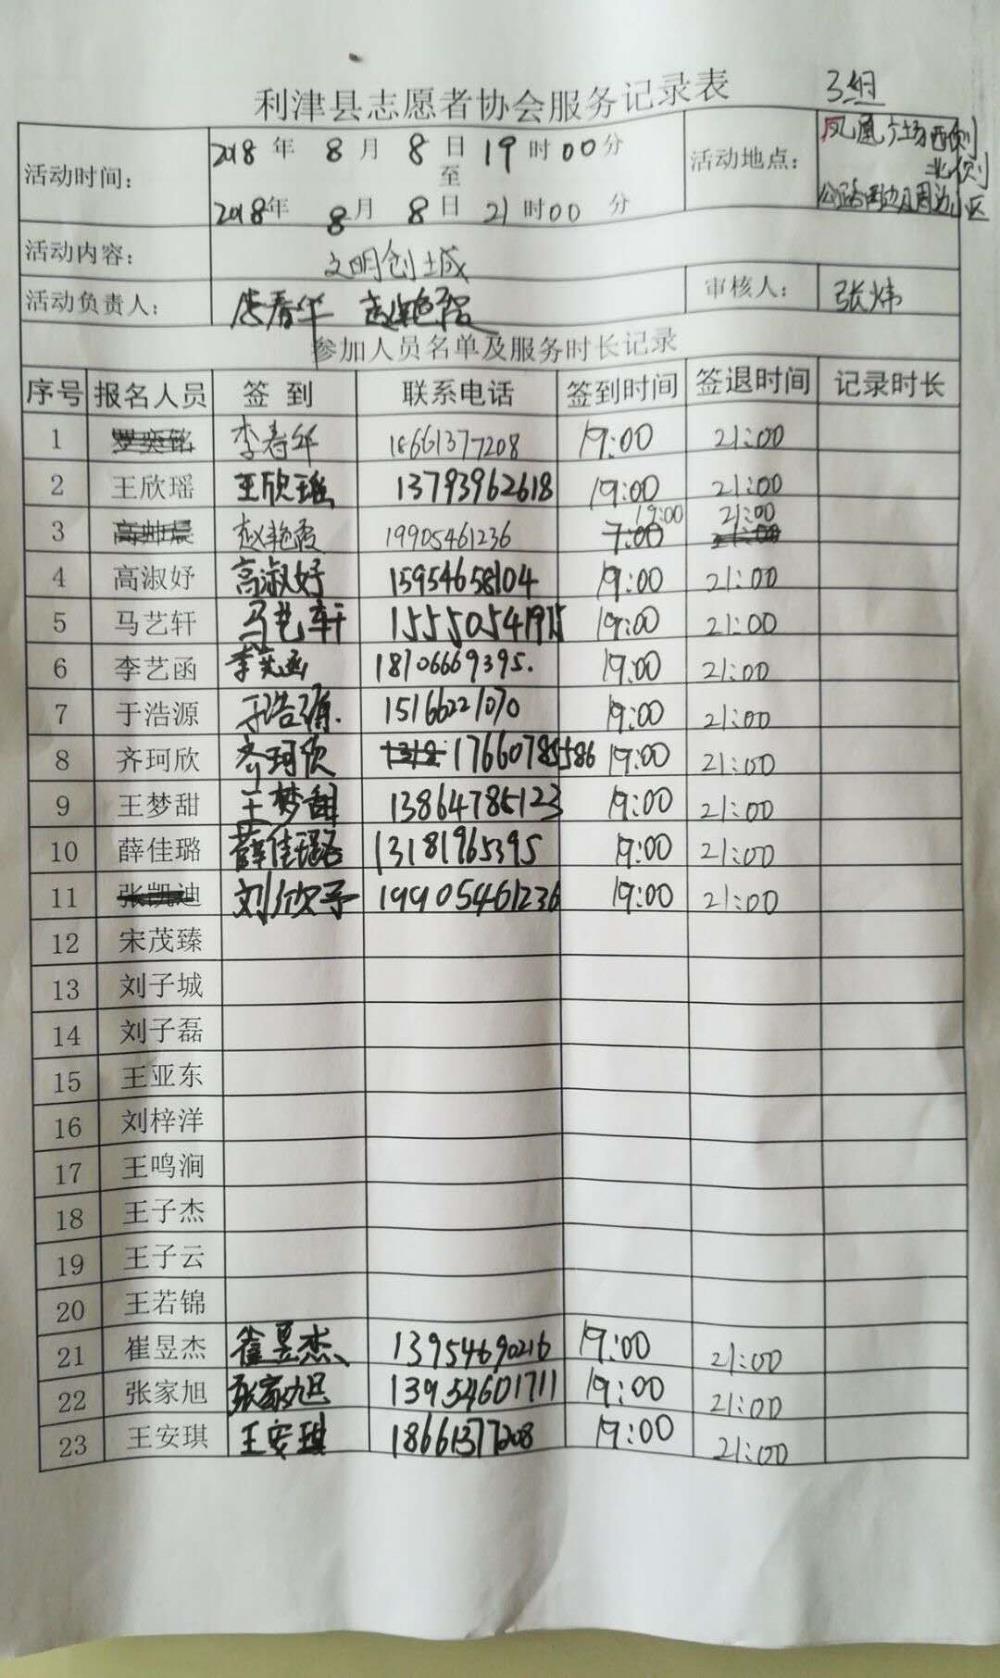 利津县志愿者协会服务记录表 3组
活动时间： 2018年 8月 8日 19时00分 至 2018年 8月 8日 21时00分
活动地点： 凤凰广场西侧 北侧 公路两边及周边小区
活动内容： 文明创城
活动负责人： 李春华 赵艳霞 审核人： 张炜
参加人员名单及服务时长记录
序号 报名人员 签到 联系电话 签到时间 签退时间 记录时长
1 罗奕铭 李春华 18661377208 19:00 21:00
2 王欣瑶 王欣瑶 13793962618 19:00 21:00
3 高帅晨 赵艳霞 19905461236 7:00 19:00 21:00
4 高淑妤 高淑妤 15954658104 19:00 21:00
5 马艺轩 马艺轩 15550541915 19:00 21:00
6 李艺函 李艺函 18106669395. 19:00 21:00
7 于浩源 于浩源. 15166221070 19:00 21:00
8 齐珂欣 齐珂欣 17660785586 19:00 21:00
9 王梦甜 王梦甜 13864785123 19:00 21:00
10 薛佳璐 薛佳璐 13181965395 19:00 21:00
11 张凯迪 刘欣予 19905461236 19:00 21:00
12 宋茂臻
13 刘子城
14 刘子磊
15 王亚东
16 刘梓洋
17 王鸣涧
18 王子杰
19 王子云
20 王若锦
21 崔昱杰 崔昱杰 13954690216 19:00 21:00
22 张家旭 张家旭 13954601711 19:00 21:00
23 王安琪 王安琪 18661377208 19:00 21:00